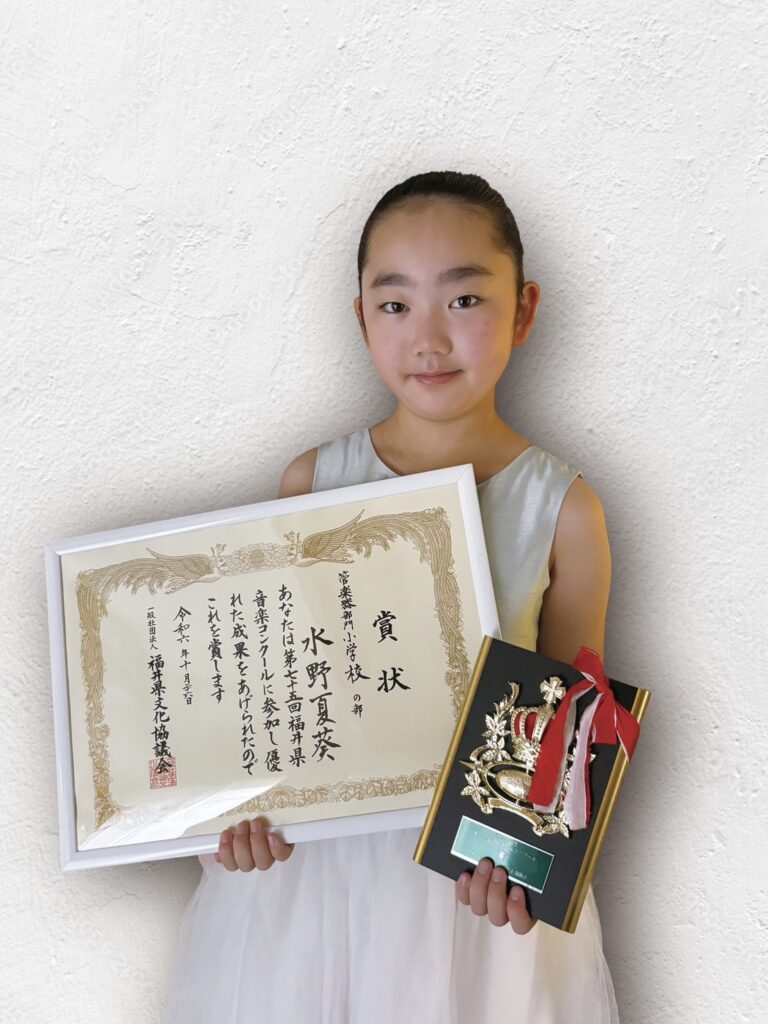 賞状
管楽器部門 小学校の部
水野夏葵
あなたは第七十五回福井県
音楽コンクールに参加し優
れた成果をあげられたので
これを賞します
令和六年十月二十六日
一般社団法人 福井県文化協議会